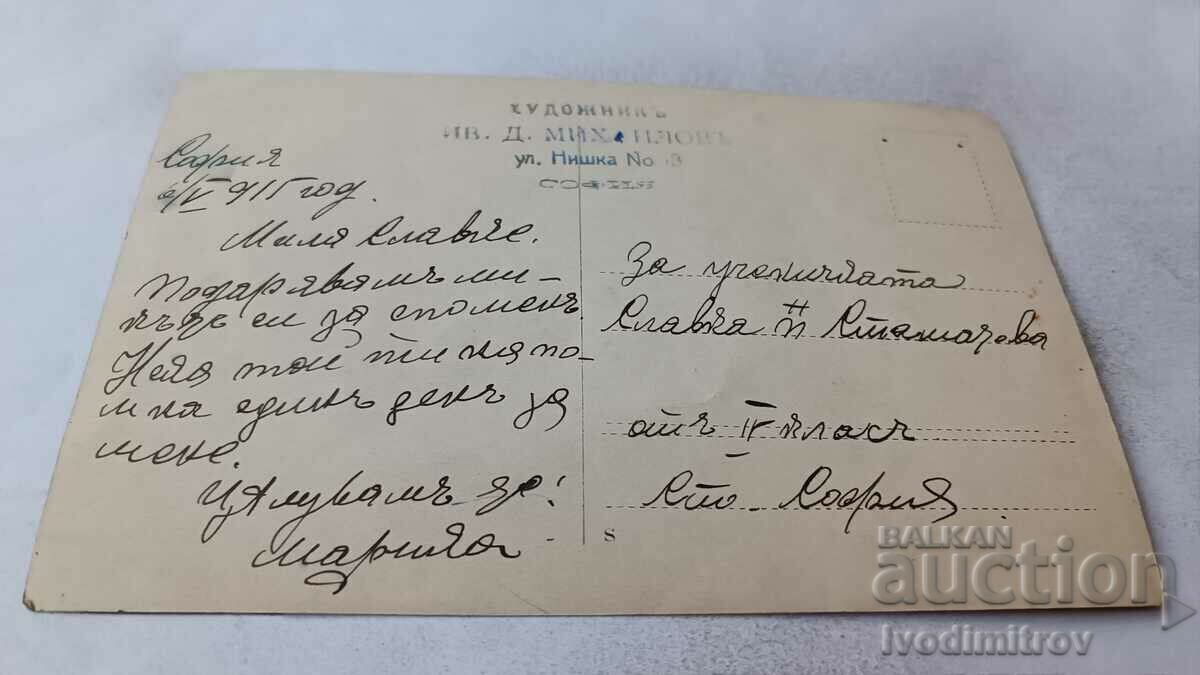 ХУДОЖНИКЪ
ИВ. Д. МИХАЙЛОВЪ
ул. Нишка No 3
СОФИЯ
София
6/V 915 год.
Мила Славче.
Подарявамъ ми-
къ си за споменъ
Нека той ти напо-
мня единъ денъ за
мене.
Цялувамъ те!
Мария
За ученичката
Славка П Стаматова
отъ IV класъ
Сто. София
S
BALKAN
auction
Ivodimitrov